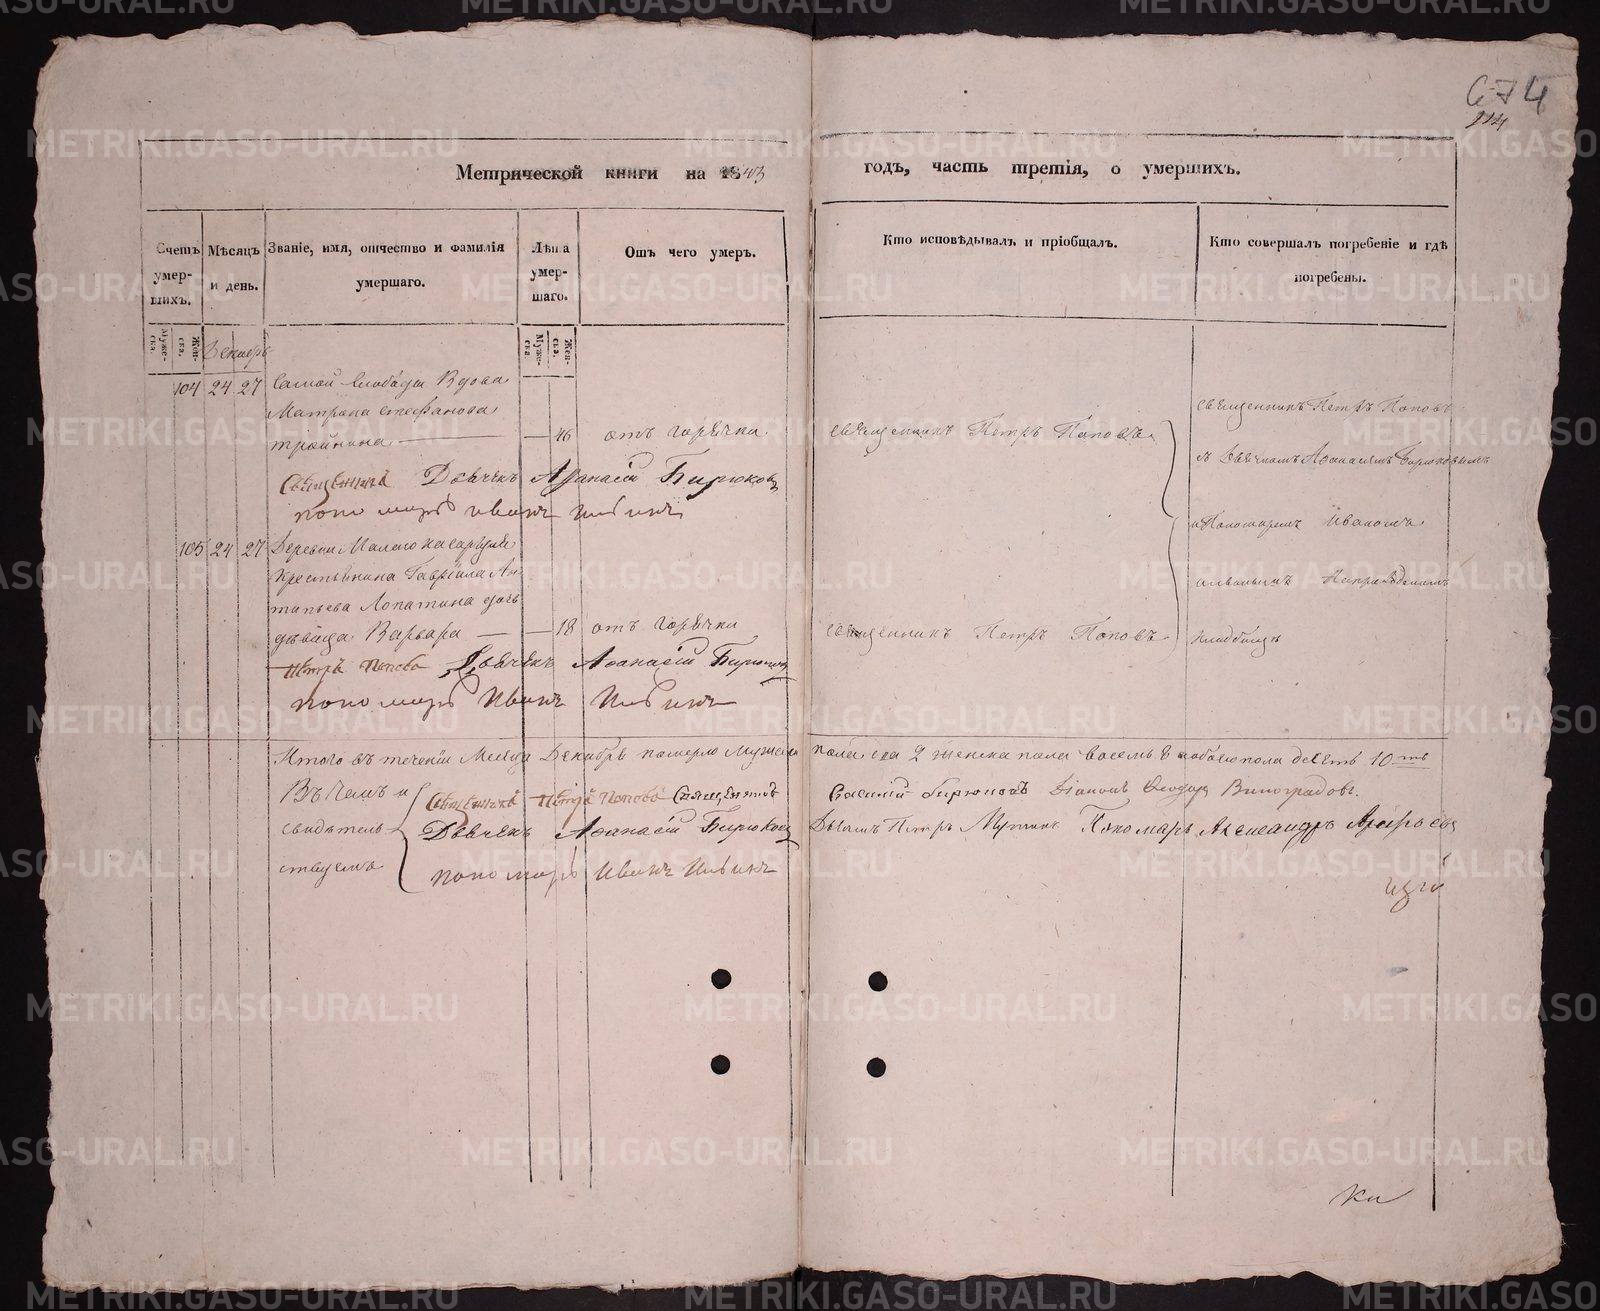 674
114
Метрической книги на 1843 годъ, часть третія, о умершихъ.
Счетъ умер-шихъ.
Мѣсяцъ и день.
Званіе, имя, отчество и фамилія умершаго.
Лѣта умер-шаго.
Отъ чего умеръ.
Кто исповѣдывалъ и пріобщалъ.
Кто совершалъ погребеніе и гдѣ погребены.
Муже-ска.
Жен-ска.
Декабрь
Муже-ска.
Жен-ска.
104 24 27 Самой Слободы Вдова
Матрона Стефанова
— 46 отъ горячки
священникъ Петръ Поповъ
Священникъ Петръ Поповъ
Священникъ Дьячекъ Афанасій Бирюковъ
съ Дьячкомъ Афанасіемъ Бирюковымъ
пономарь Иванъ
и Пономаремъ Иваномъ
105 24 27 Деревни Малого
крестьянина Гавріила Ан-
типьева Лопатина дочь
дѣвица Варвара — — 18 отъ горячки
священникъ Петръ Поповъ
кладбищѣ
Петръ Поповъ Дьячекъ Афанасій Бирюковъ
пономарь Иванъ
Итого въ теченіи Месяца Декабрѣ померло Мужеска пола два 2 женска пола восемь 8 а обоего пола десять 10ть
Въ чемъ и
свидѣтель-
ствуемъ
Священникъ Петръ Поповъ Священникъ Василій Бирюковъ Діаконъ Феодоръ Виноградовъ.
Дьячекъ Афанасій Бирюковъ Дьячекъ Петръ Пономарь Александръ
пономарь Иванъ
METRIKI.GASO-URAL.RU